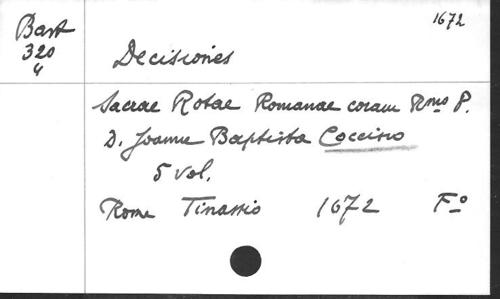 1672
Bart
320
4
Decisiones
Sacrae Rotae Romanae coram Rmo P.
D. Joanne Baptista Coccino
5 vol.
Rome Tinassio 1672 Fo